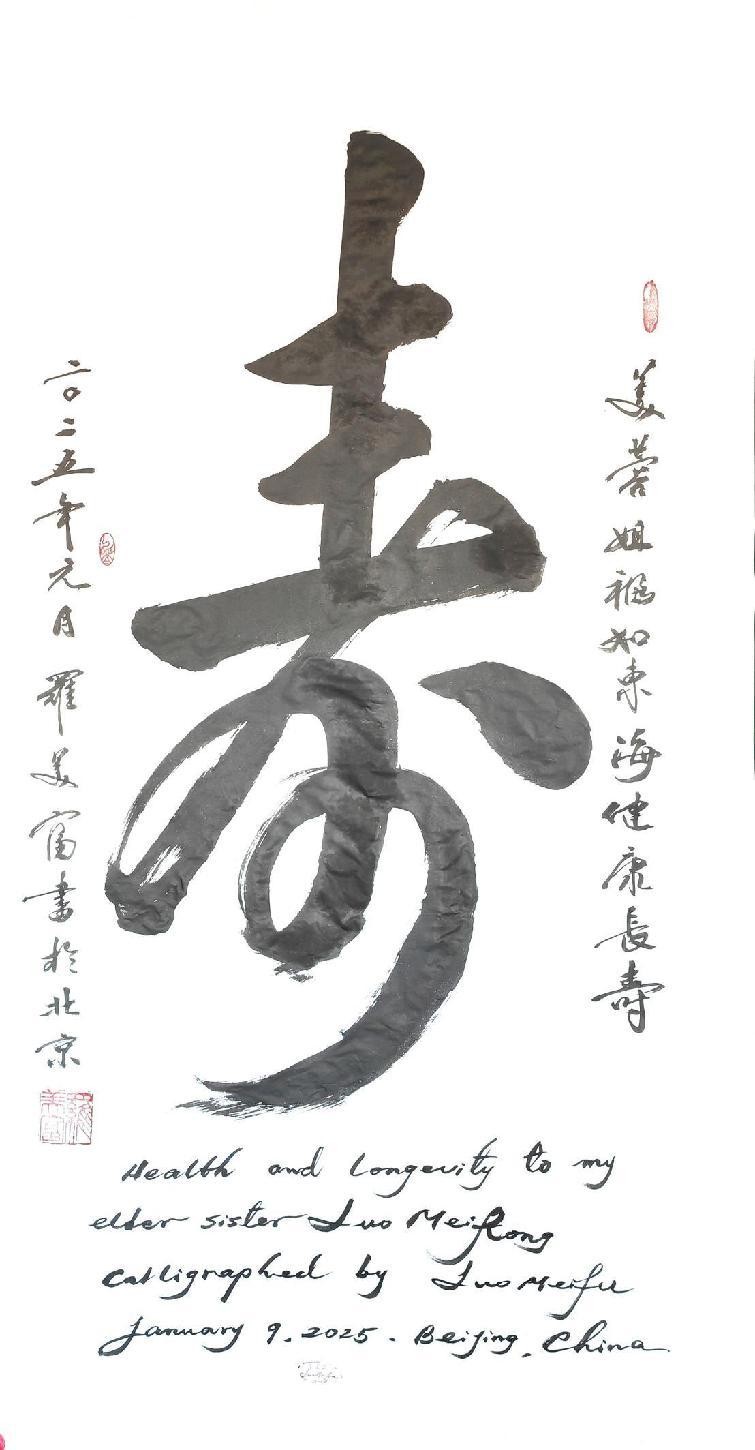 美蓉姐福如东海健康長壽
寿
二〇二五年元月 羅美富書於北京
Health and longevity to my
elder sister Luo MeiRong
Calligraphed by Luo Meifu
January 9. 2025. Beijing, China